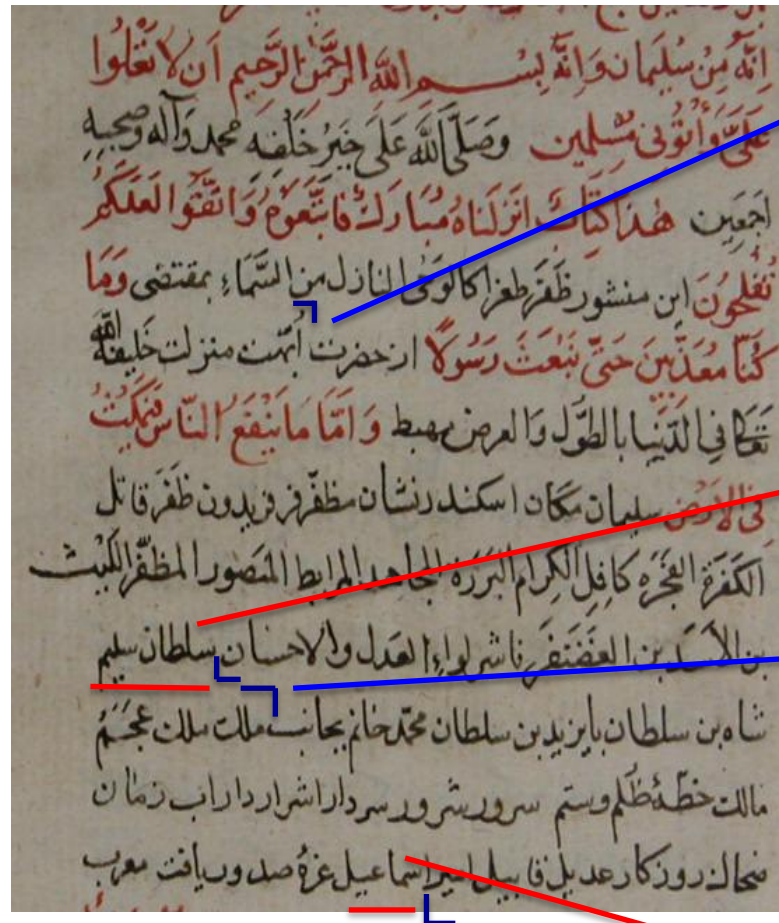 اِنَّهُ مِنْ سُلَیمان وَاِنَّهُ بِسْمِ اللَّهِ الرَّحْمٰنِ الرَّحِیم اَنْ لا تَعْلُوا
عَلَیَّ وَأتُونی مُسْلِمین وَصَلَّی اللَّه عَلَی خَیرِ خَلْقِه محمد وَآله وصحبِه
اجمَعین هٰذا كِتَابٌ اَنْزَلناهُ مُبَارَكٌ فَاتَّبِعوهُ وَاتَّقُوا لَعَلَّكُمْ
تُفْلِحُونَ این منشور ظَفَر طغرا کالوَحْی النازل من السَّمَاءِ بمقتضی وَمَا
كُنَّا مُعَذِّبینَ حَتّی نَبْعَثَ رَسُولًا از حضرت اُبَّهت منزلت خَلیفة اللّه
تَعَالی فی الدّنیا بالطّول وَالعرض مهبط وَ اَمّا مَا یَنْفَعُ النّاسَ فَیَمْكُثُ
فی الاَرْضِ سلیمان مکان اسکندر نشان مظفّر فر فریدون ظَفَر قاتل
الکَفَرَة الفَجَرَه کافِل الکِرام البَرَرَة المجاهد المرابط المنصور المظفّر اللیث
بن الاَسَد بن الغَضَنفَر ناشر لِواءِ العَدل والاحسان سلطان سلیم
شاه بن سلطان بایزید بن سلطان محمّد خانم بجانب ملك ملك عجَم
مالك خطّهٔ ظُلم وستم سرور شرور سردار اشرار داراب زمان
ضحاك روزکار عدیل قابیل امیر اسماعیل عزّ صدور یافت معرب